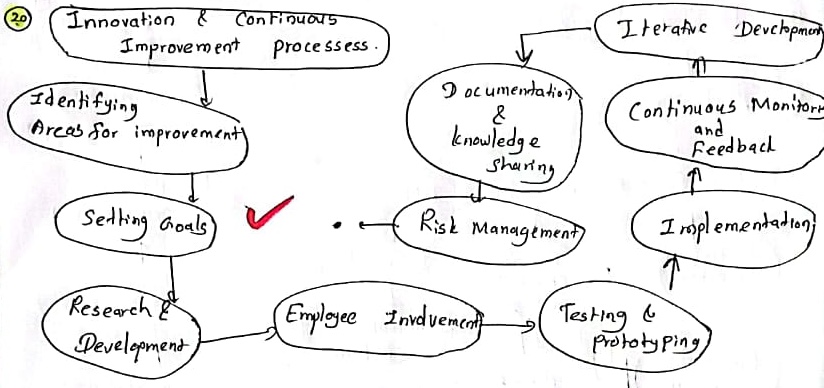 20
Innovation & Continuous
Improvement processess.
Identifying
Areas for improvement
Setting Goals
Research &
Development
Employee Involvement
Testing &
Prototyping
Implementation
Continuous Monitory
and
Feedback
Iterative Development
Documentation
&
knowledge
sharing
Risk Management